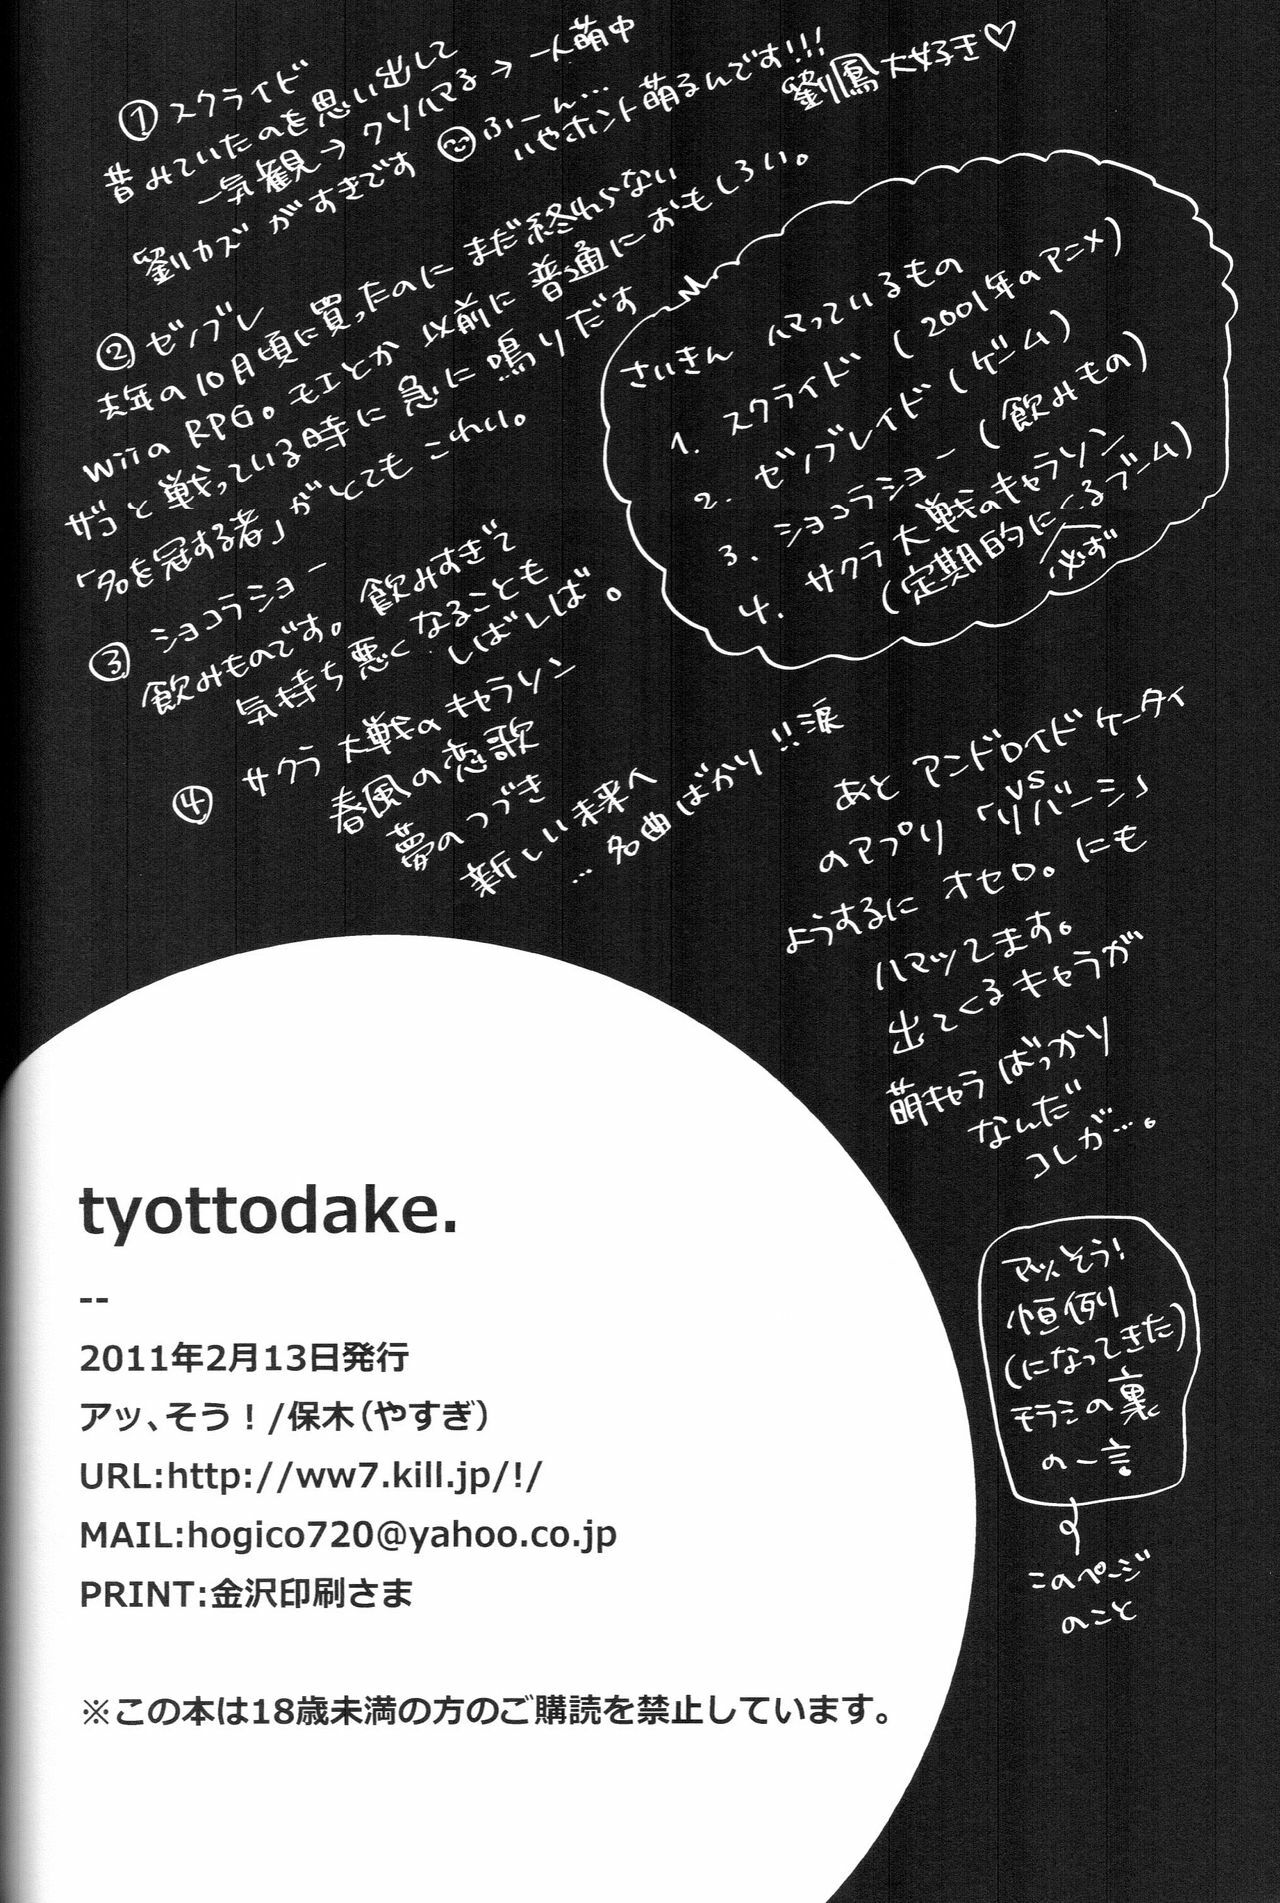 ① スクライド
昔みていたのを思い出して
一気観→クソハマる→一人萌中
劉カズがすきです ふーん…
いやホント萌るんです!!!
劉鳳大好き♡
② ゼノブレ
去年の10月頃に買ったのにまだ終わらない
wiiのRPG。モエとか以前に普通におもしろい。
ザコと戦っている時に急に鳴りだす
「名を冠する者」がとてもこわい。
③ ショコラショー
飲みものです。飲みすぎて
気持ち悪くなることも
しばしば。
④ サクラ大戦のキャラソン
春風の恋歌
夢のつづき
新しい未来へ
…名曲ばかり!!涙
さいきん ハマっているもの
1. スクライド(2001年のアニメ)
2. ゼノブレイド(ゲーム)
3. ショコラショー(飲みもの)
4. サクラ大戦のキャラソン
(定期的に必ずくるブーム)
あと アンドロイドケータイ
のアプリ「vsリバーシ」
ようするに オセロ。にも
ハマッてます。
出てくるキャラが
萌キャラばっかり
なんだ
コレが…。
アッそう!
恒例
(になってきた)
モラシの裏
の一言。
このページ
のこと
tyottodake.
--
2011年2月13日発行
アッ、そう！/保木(やすぎ)
URL:http://ww7.kill.jp/!/
MAIL:hogico720@yahoo.co.jp
PRINT:金沢印刷さま
※この本は18歳未満の方のご購読を禁止しています。